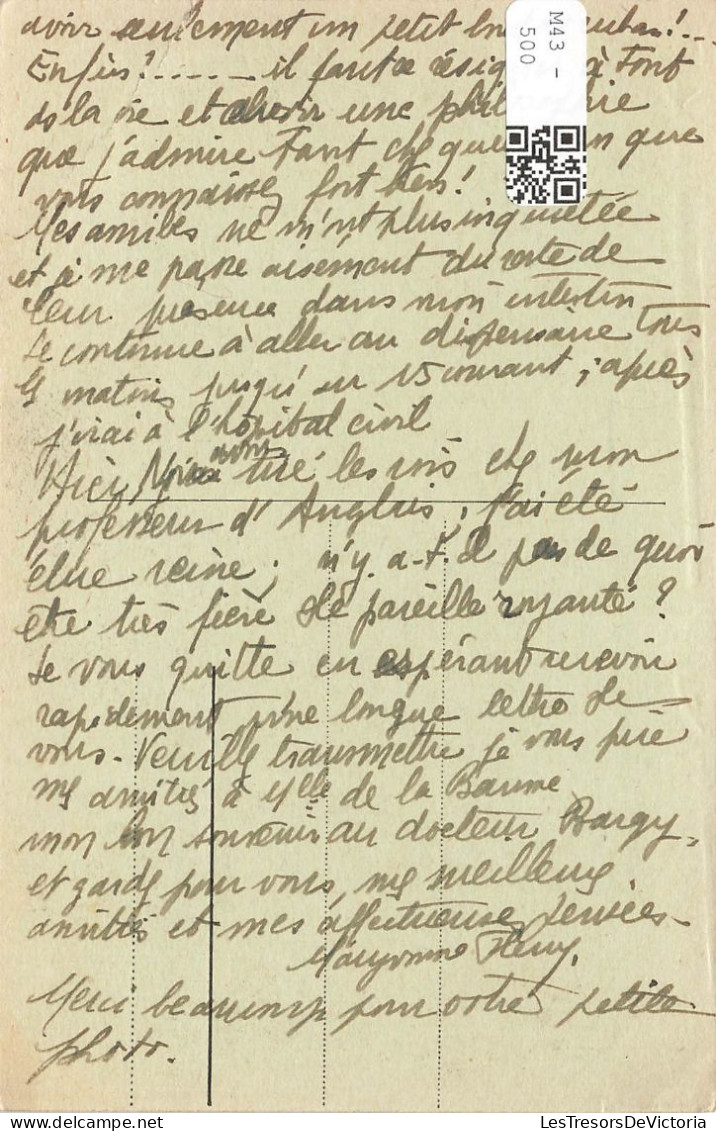 avoir seulement un petit
M43 -
500
Enfin! - - - - - il faut se à Tout
ds la vie et avoir une
que j'admire Tant chez que
vous connaissez fort bien!
Mes amibes ne m'ont plus inquiétée
et je me passe aisément du reste de
leur présence dans mon intestin
Je continue à aller au dispensaire Tous
les matins jusqu'au 15 courant, après
j'irai à l'hôpital civil
Hier, Nous avons tiré les rois chez mon
professeur d'Anglais, j'ai été
élue reine; n'y a-t-il pas de quoi
etre très fière de pareille royauté?
Je vous quitte en espérant recevoir
rapidement une longue lettre de
vous. Veuillez transmettre je vous prie
mes amitiés à Melle de la Baume
mon bon souvenir au docteur Bargy,
et gardez pour vous, mes meilleures
amitiés et mes affectueuses pensées -
Maryvonne
Merci beaucoup pour votre petite
photo.
LesTresorsDeVictoria